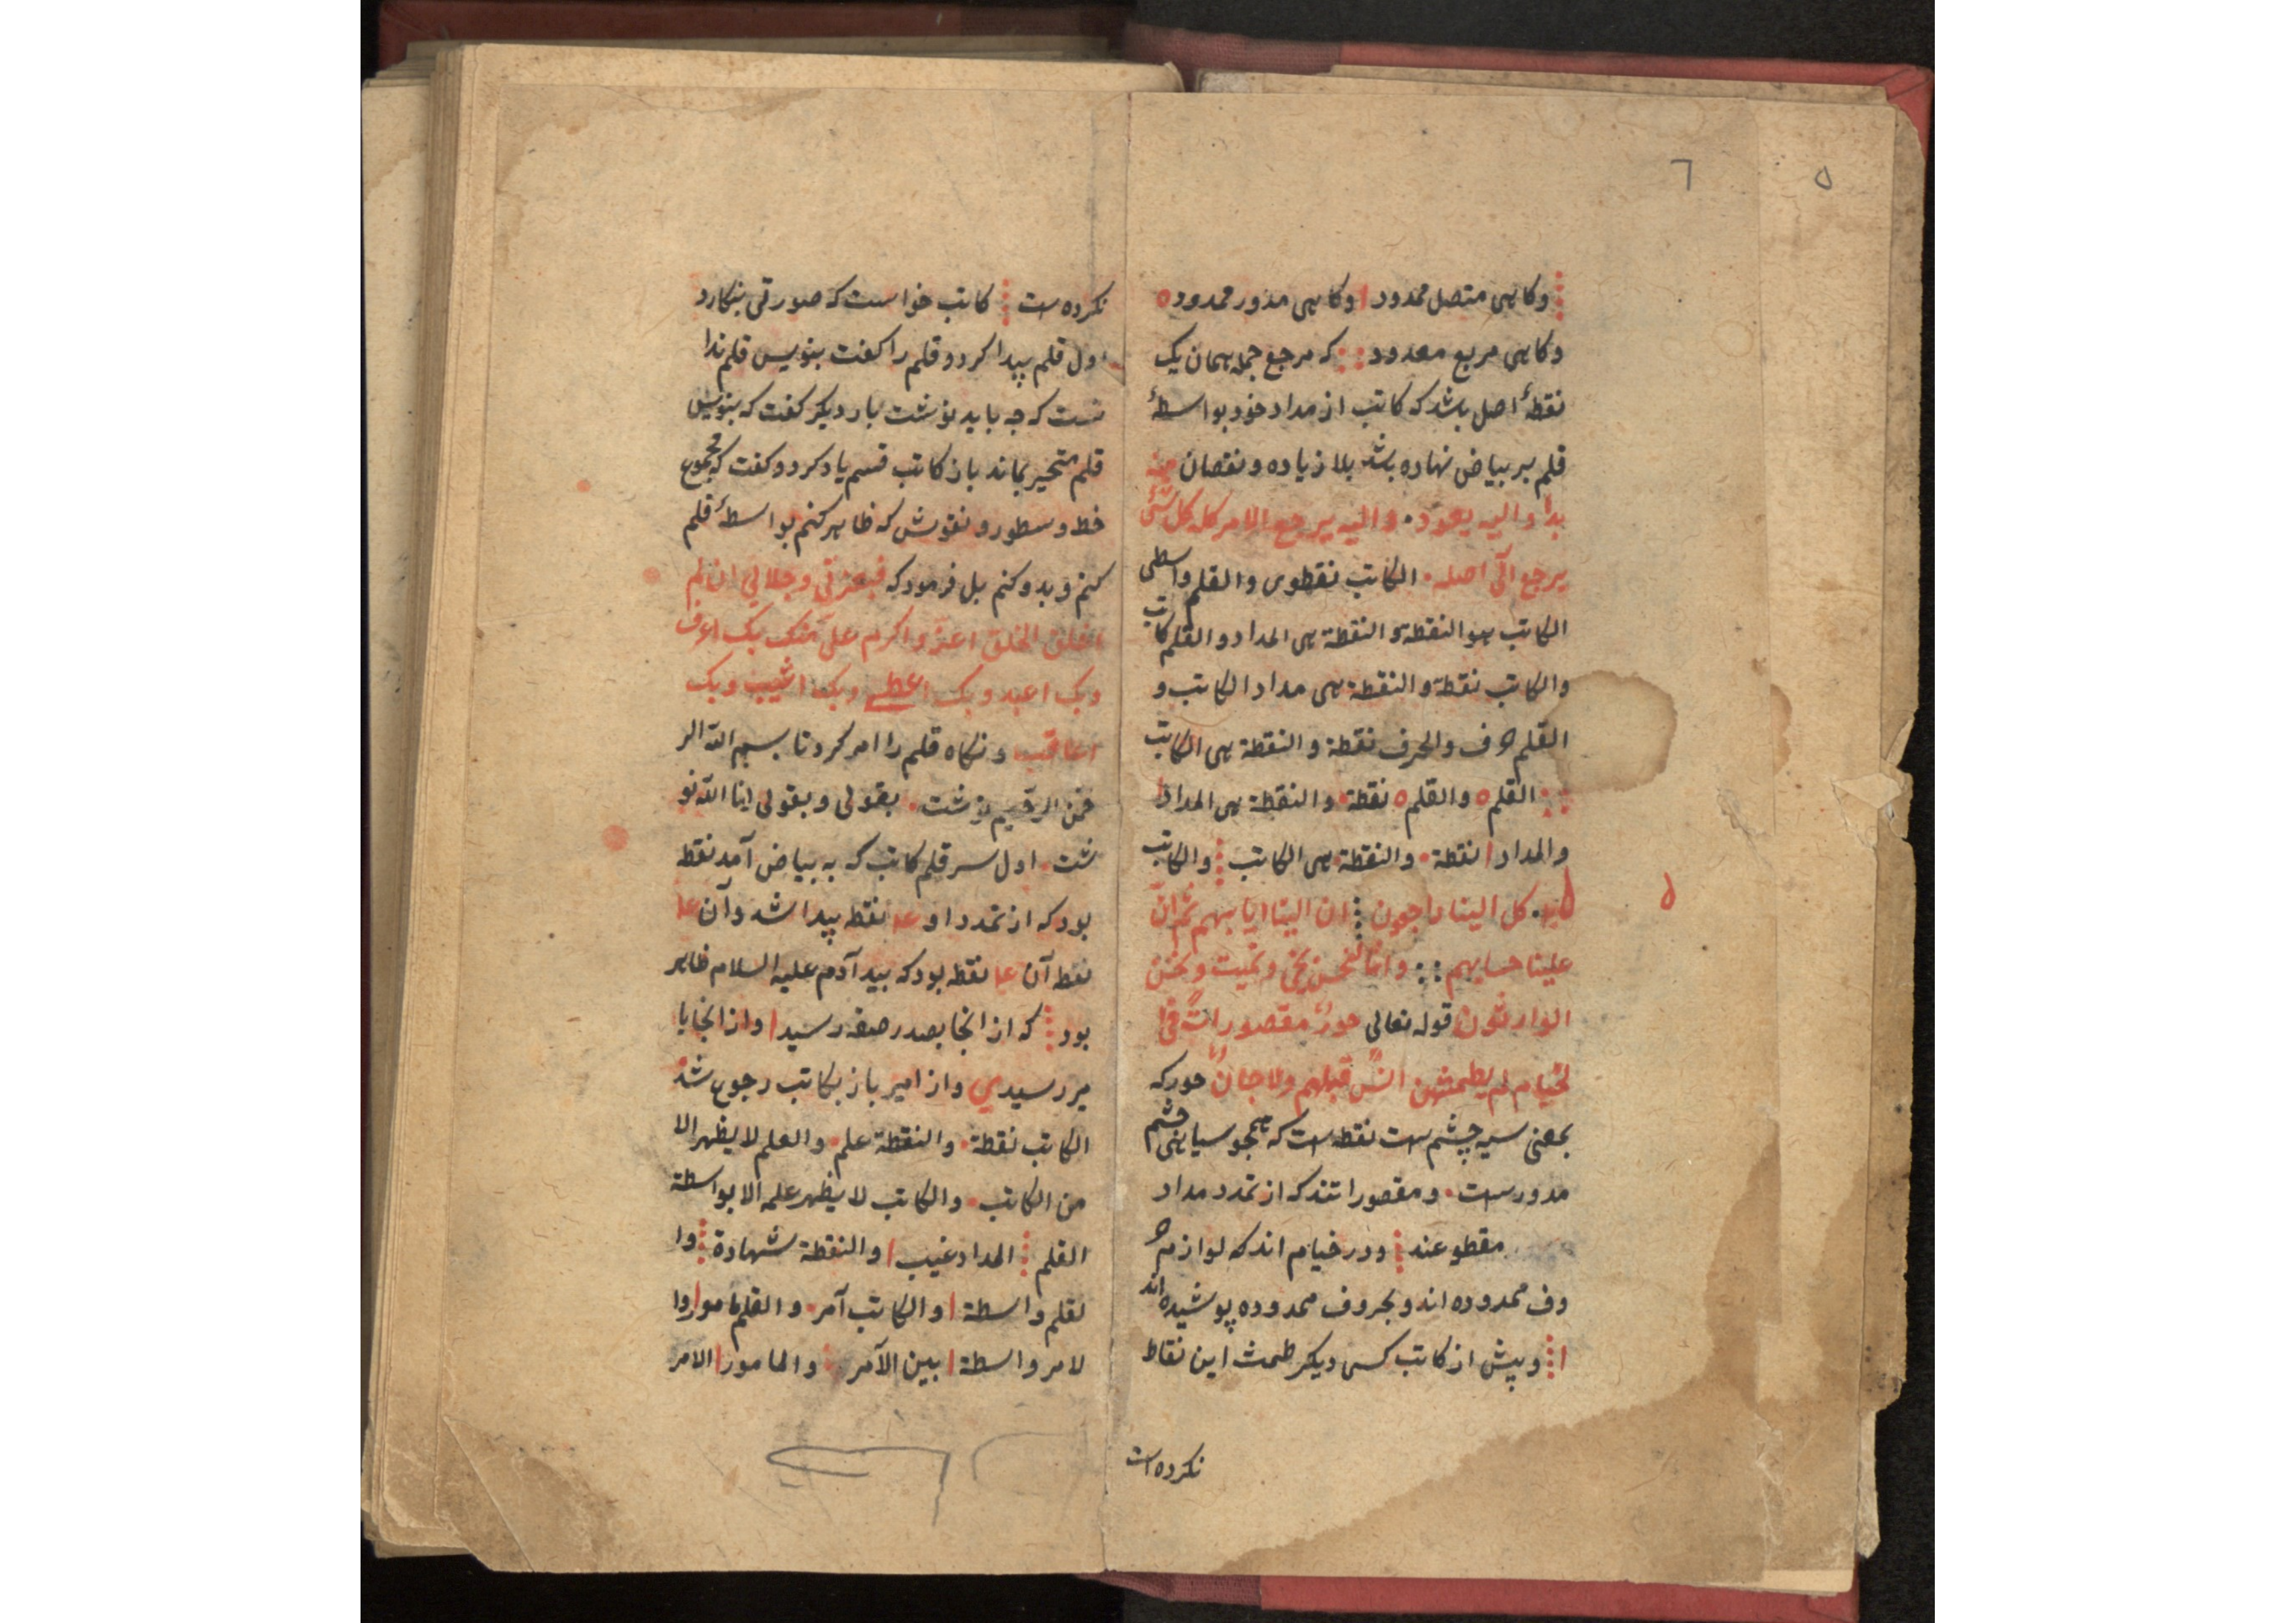 ٦
٥
وکاهی متصل ممدود ا وکاهی مدور ممدود ه
وکاهی مربع معدود که مرجع جمله همان یک
نقطهٔ اصل باشد که کاتب از مداد خود بواسطهٔ
قلم بر بیاض نهاده باشد بلا زیاده ونقصان منه
بدا والیه یعود والیه یرجع الامر کله کل شئ
یرجع الی اصله الکاتب نقطوی والقلم واسطی
الکاتب هو النقطة والنقطة هی المداد والقلم کاتب
والکاتب نقطة والنقطة هی مداد الکاتب و
القلم حرف والحرف نقطة والنقطة هی الکاتب
القلم ه والقلم ه نقطة والنقطة هی المداد ا
والمداد ا نقطة والنقطة هی الکاتب والکاتب
کل الینا راجعون ان الینا ایابهم ثم ان
علینا حسابهم وانا لنحن نحی ونمیت ونحن
الوارثون قوله تعالی حورٌ مقصوراتٌ فی ا
لخیام لم یطمثهن انسٌ قبلهم ولا جانٌ حور که
بمعنی سیه چشم است نقطه است که همجو سیاهی چشم
مدور است ومقصوراتند که از تمدد مداد
مقطوعند ودر خیام اند که لوازم حر
وف ممدوده اند وبحروف ممدوده پوشیده اند
ا وپیش از کاتب کسی دیکر طمث این نقاط
نکرده است
نکرده است کاتب خواست که صورتی بنکارد
اول قلم پیدا کرد وقلم را کفت بنویس قلم ندا
نست که چه باید نوشت بار دیکر کفت که بنویس
قلم متحیر بماند باز کاتب قسم یاد کرد وکفت که مجموع
خط وسطور ونقوش که ظاهر کنم بواسطهٔ قلم
کنم وبدو کنم بل فرمود که فبعزتی وجلالی ان لم
اخلق الخلق اعز واکرم علی منک بک اعرف
وبک اعبد وبک اعطی وبک اثیب وبک
اعاقب ونکاه قلم را امر کرد تا بسم الله الر
حمن الرحیم نوشت بقولی وبقولی انا الله نو
شت اول سر قلم کاتب که به بیاض آمد نقطه
بود که از تمدد او نقطه پیدا شد وآن
نقط آن نقطه بود که بید آدم علیه السلام ظاهر
بود که از انجا بصدر صفه رسید ا واز انجا با
میر رسید ی واز امیر باز بکاتب رجوع شد
الکاتب نقطة والنقطة علم والعلم لا یظهر الا
من الکاتب والکاتب لا یظهر علمه الا بواسطة
القلم المداد غیب ا والنقطة شهادة وا
لقلم واسطة ا والکاتب آمر والقلم مامور ا وا
لامر واسطة ا بین الآمر والمامور ا الامر